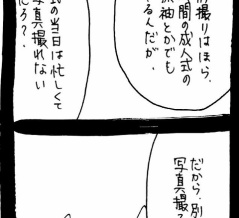 撮りはほら、
間の成人式の
袖とかでも
るんだが、
式の当日は忙しくて
写真撮れない
だろ？、
だから、別
写真撮